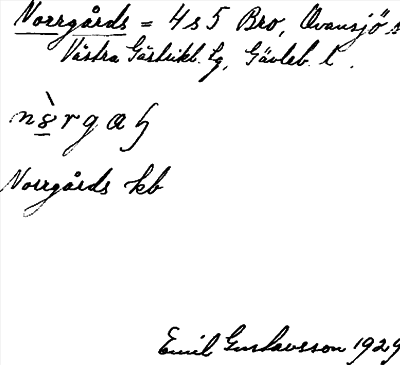 Norrgårds = 4 s 5 Bro, Ovansjö s
Västra Gästrikl. tg, Gävleb. l.
Norrgårds kb
Emil Gustavsson 1929